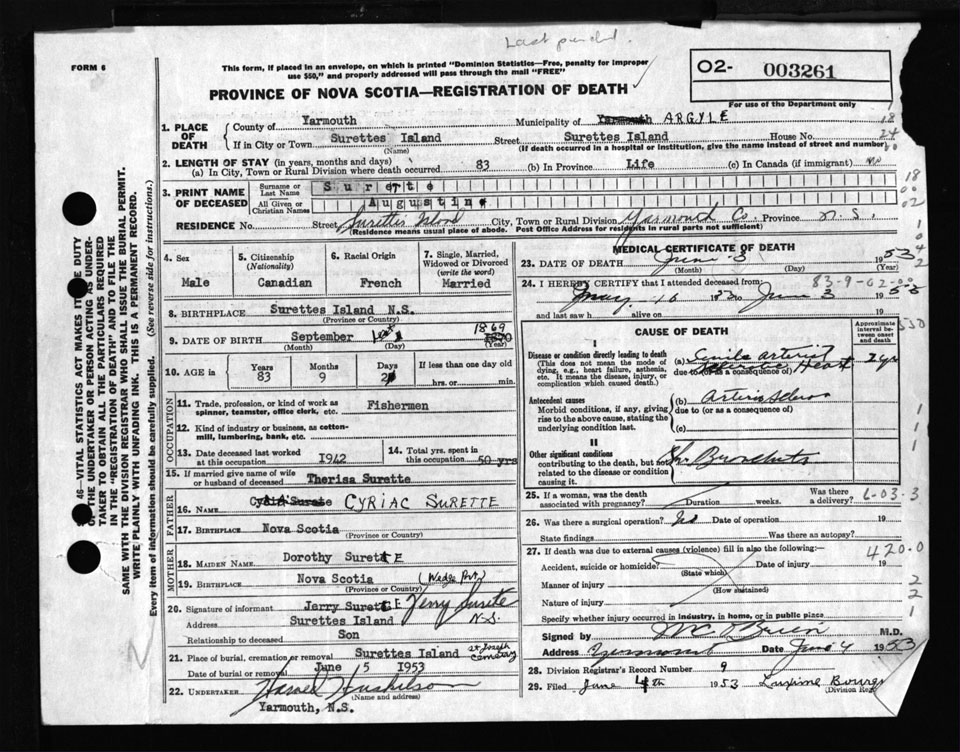 Last pencil.
FORM 6
This form, if placed in an envelope, on which is printed "Dominion Statistics—Free, penalty for improper
use $50," and properly addressed will pass through the mail "FREE"
O2- 003261
For use of the Department only
PROVINCE OF NOVA SCOTIA—REGISTRATION OF DEATH
1. PLACE OF DEATH
County of Yarmouth Municipality of Yarmouth ARGYLE
If in City or Town Surettes Island Street Surettes Island House No.
(Name) (If death occurred in a hospital or institution, give the name instead of street and number)
2. LENGTH OF STAY (in years, months and days)
(a) In City, Town or Rural Division where death occurred 83 (b) In Province Life (c) In Canada (if immigrant)
3. PRINT NAME OF DECEASED
Surname or Last Name Surette
All Given or Christian Names Augustin
RESIDENCE No. Street Surettes Island City, Town or Rural Division Yarmouth Co. Province N.S.
(Residence means usual place of abode. Post Office Address for residents in rural parts not sufficient)
4. Sex Male
5. Citizenship (Nationality) Canadian
6. Racial Origin French
7. Single, Married, Widowed or Divorced (write the word) Married
8. BIRTHPLACE Surettes Island N.S.
(Province or Country)
9. DATE OF BIRTH September 1869 1870
(Month) (Day) (Year)
10. AGE in Years 83 Months 9 Days 2 If less than one day old
hrs. or min.
OCCUPATION
11. Trade, profession, or kind of work as spinner, teamster, office clerk, etc. Fishermen
12. Kind of industry or business, as cotton-mill, lumbering, bank, etc.
13. Date deceased last worked at this occupation 1942
14. Total yrs. spent in this occupation 50 yrs
15. If married give name of wife or husband of deceased Therisa Surette
FATHER
16. NAME CYRIAC SURETTE
17. BIRTHPLACE Nova Scotia
(Province or Country)
MOTHER
18. MAIDEN NAME Dorothy SuretTE
19. BIRTHPLACE Nova Scotia (Wedge Port)
(Province or Country)
20. Signature of informant Jerry SuretTE Jerry Surette
Address Surettes Island N.S.
Relationship to deceased Son
21. Place of burial, cremation or removal Surettes Island St Joseph Cemetery
Date of burial or removal June 5 1953
22. UNDERTAKER Harold Huskilson
(Name and address)
Yarmouth, N.S.
MEDICAL CERTIFICATE OF DEATH
23. DATE OF DEATH June 3 1953
(Month) (Day) (Year)
83-9-02
24. I HEREBY CERTIFY that I attended deceased from:
May 16 1953 to June 3 1953
and last saw h alive on 19
CAUSE OF DEATH
Approximate interval between onset and death
I
Disease or condition directly leading to death
(This does not mean the mode of dying, e.g., heart failure, asthenia, etc. It means the disease, injury, or complication which caused death.)
(a) Senile Arteriosl
due to (or as a consequence of) Heart
2 yrs
Antecedent causes
Morbid conditions, if any, giving rise to the above cause, stating the underlying condition last.
(b) Arteriosclerosis
due to (or as a consequence of)
(c)
II
Other significant conditions
contributing to the death, but not related to the disease or condition causing it.
Chr Bronchitis
25. If a woman, was the death associated with pregnancy? Duration weeks. Was there a delivery?
6-03-3
26. Was there a surgical operation? No Date of operation 19
State findings Was there an autopsy?
27. If death was due to external causes (violence) fill in also the following:—
420.0
Accident, suicide or homicide? Date of injury 19
(State which)
Manner of injury
(How sustained)
Nature of injury
Specify whether injury occurred in industry, in home, or in public place
Signed by M C O'Brien M.D.
Address Yarmouth Date June 4 1953
28. Division Registrar's Record Number 9
29. Filed June 4th 1953
(Division Registrar)
46—VITAL STATISTICS ACT MAKES IT THE DUTY
OF THE UNDERTAKER OR PERSON ACTING AS UNDER-
TAKER TO OBTAIN ALL THE PARTICULARS REQUIRED
IN THE "REGISTRATION OF DEATH" AND TO FILE THE
SAME WITH THE DIVISION REGISTRAR WHO SHALL ISSUE THE BURIAL PERMIT.
WRITE PLAINLY WITH UNFADING INK. THIS IS A PERMANENT RECORD.
Every item of information should be carefully supplied. (See reverse side for instructions.)